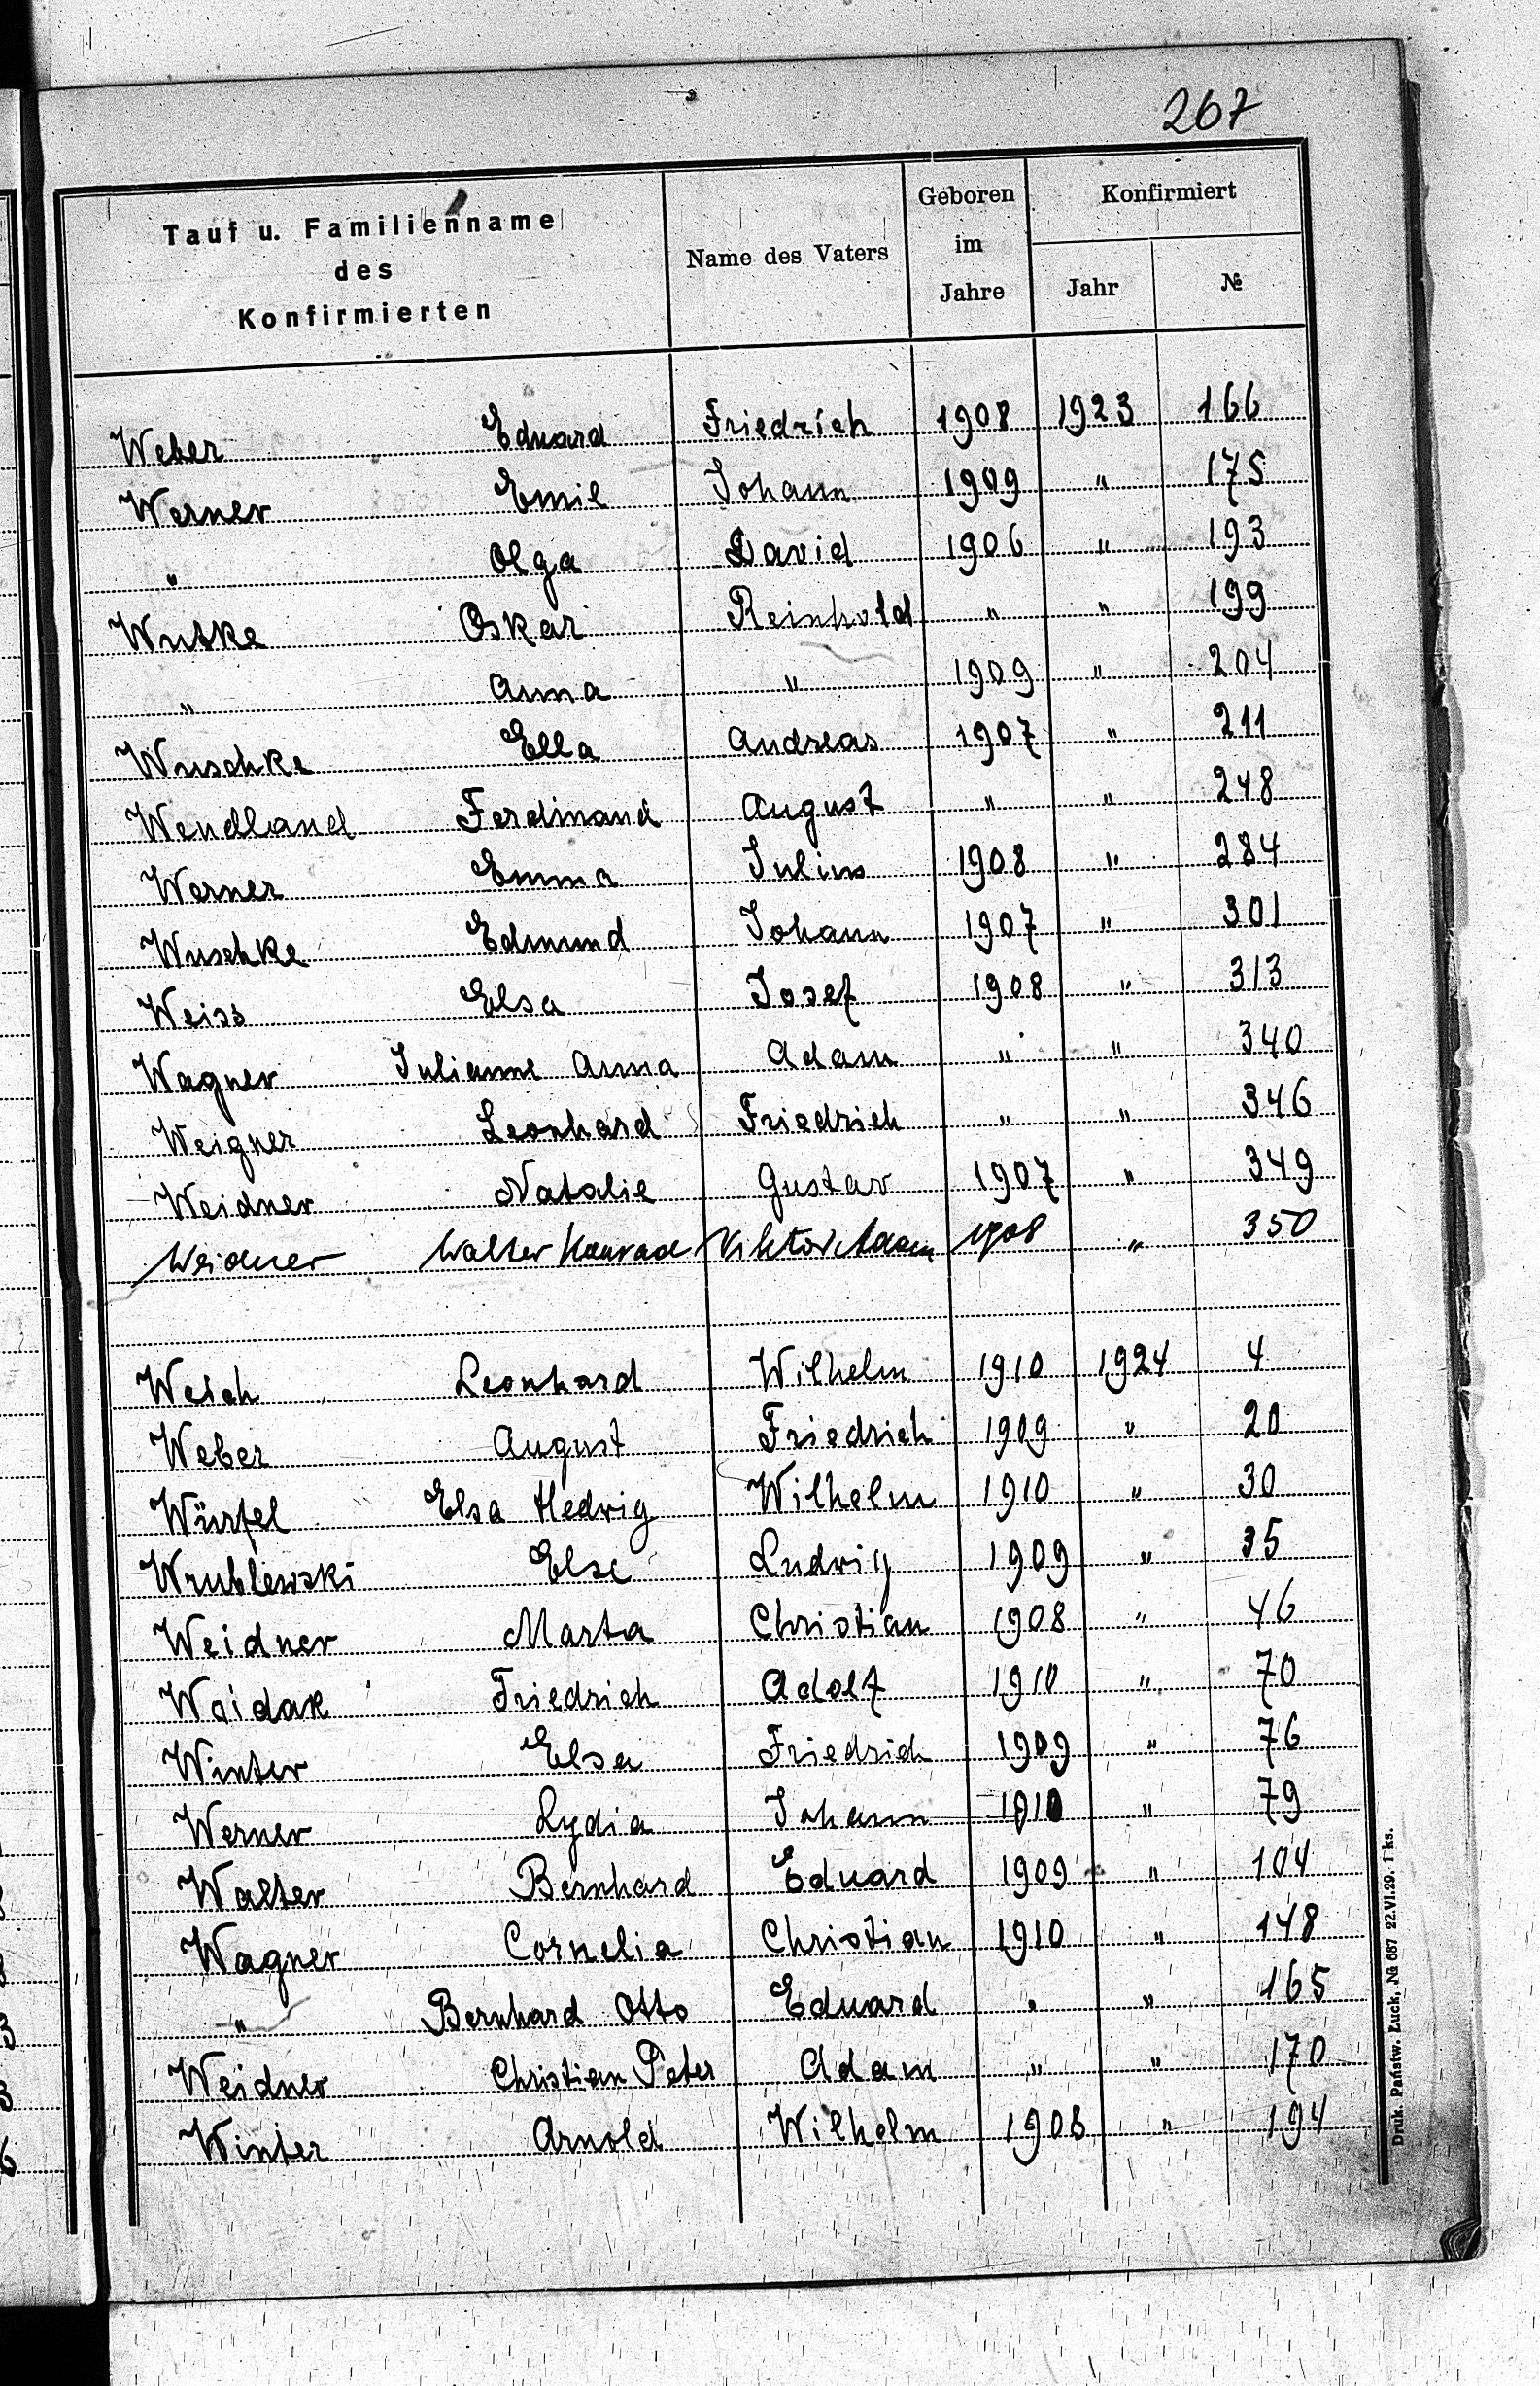 267
Tauf u. Familienname des Konfirmierten | Name des Vaters | Geboren im Jahre | Konfirmiert Jahr | №
Weber Eduard Friedrich 1908 1923 166
Werner Emil Johann 1909 " 175
" Olga David 1906 " 193
Wutke Oskar Reinhold " " 199
" Anna " 1909 " 204
Wuschke Ella Andreas 1907 " 211
Wendland Ferdinand August " " 248
Werner Emma Julius 1908 " 284
Wuschke Edmund Johann 1907 " 301
Weiss Elsa Josef 1908 " 313
Wagner Julianne Anna Adam " " 340
Weigner Leonhard Friedrich " " 346
Weidner Natalie Gustav 1907 " 349
Weidner Walter Konrad Viktor Adam 1908 " 350
Weich Leonhard Wilhelm 1910 1924 4
Weber August Friedrich 1909 " 20
Würfel Elsa Hedvig Wilhelm 1910 " 30
Wrublewski Else Ludwig 1909 " 35
Weidner Marta Christian 1908 " 46
Woidak Friedrich Adolf 1910 " 70
Winter Elsa Friedrich 1909 " 76
Werner Lydia Johann 1910 " 79
Walter Bernhard Eduard 1909 " 104
Wagner Cornelia Christian 1910 " 148
" Bernhard Otto Eduard " " 165
Weidner Christian Peter Adam " " 170
Winter Arnold Wilhelm 1908 " 194
Druk. Państw. Łuck, № 687 22.VI.29. 1 ks.